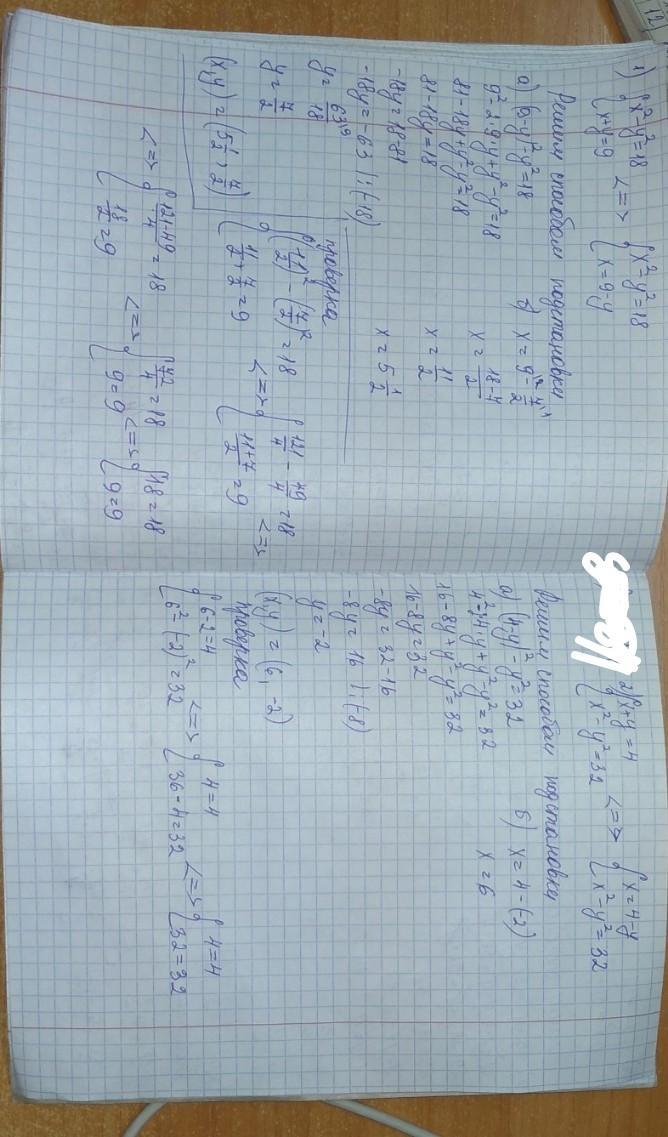 1) { x² - y² = 18
x + y = 9 <=> { x² - y² = 18
x = 9 - y
Решим способом подстановки
а) (9-y)² - y² = 18
9² - 2·9·y + y² - y² = 18
81 - 18y + y² - y² = 18
81 - 18y = 18
-18y = 18 - 81
-18y = -63 |:(-18)
y = 63/18
y = 7/2
б) x = 9 - 7/2
x = 18-7/2
x = 11/2
x = 5 1/2
(x,y) = (5 1/2; 7/2)
проверка
{ (11/2)² - (7/2)² = 18
11/2 + 7/2 = 9 <=> { 121/4 - 49/4 = 18
11+7/2 = 9 <=>
<=> { 121-49/4 = 18
18/2 = 9 <=> { 72/4 = 18
9 = 9 <=> { 18 = 18
9 = 9
2) { x + y = 4
x² - y² = 32 <=> { x = 4 - y
x² - y² = 32
Решим способом подстановки
а) (4-y)² - y² = 32
4² - 2·4·y + y² - y² = 32
16 - 8y + y² - y² = 32
16 - 8y = 32
-8y = 32 - 16
-8y = 16 |:(-8)
y = -2
б) x = 4 - (-2)
x = 6
(x,y) = (6, -2)
проверка
{ 6-2=4
6² - (-2)² = 32 <=> { 4 = 4
36 - 4 = 32 <=> { 4 = 4
32 = 32